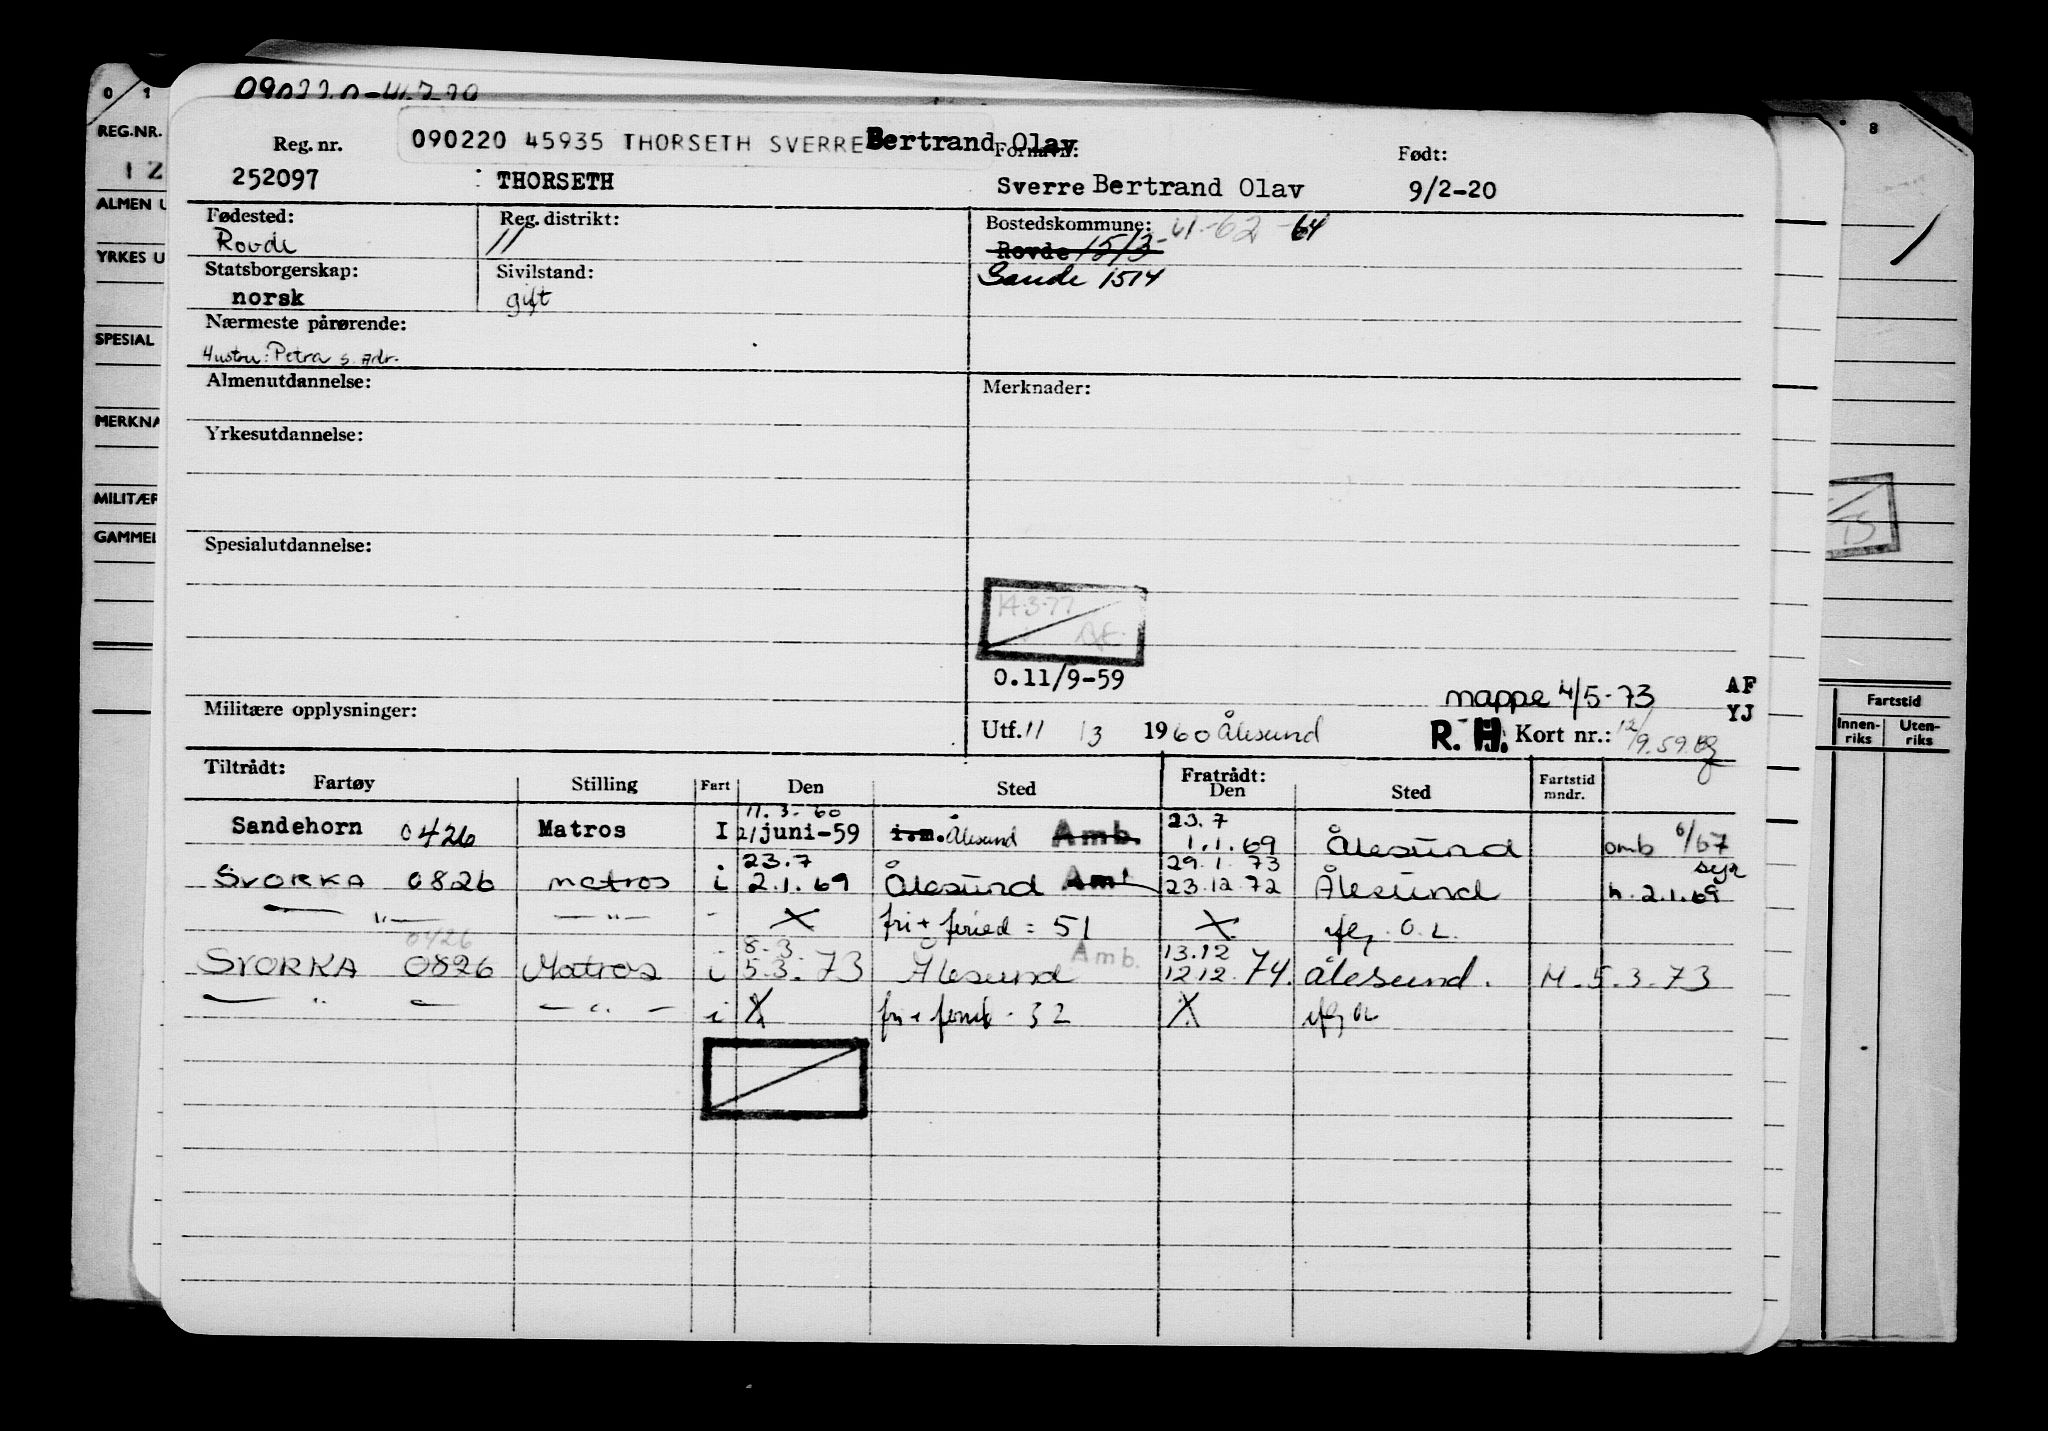 0 1
REG.NR.
1 2
ALMEN U
YRKES U
SPESIAL
MERKNA
MILITÆR
GAMMEL
Reg. nr. 090220 45935 THORSETH SVERRE Bertrand Olav Fornavn: Født:
252097 THORSETH Sverre Bertrand Olav 9/2-20
Fødested: Reg. distrikt: Bostedskommune: 61-62-64
Rovde 11 Rovde 1513
Statsborgerskap: Sivilstand: Sande 1514
norsk gift
Nærmeste pårørende:
Hustru: Petra s. Adr.
Almenutdannelse: Merknader:
Yrkesutdannelse:
Spesialutdannelse:
14.3.77
O.11/9-59
mappe 4/5-73 AF
YJ
Militære opplysninger: Utf. 11 13 1960 Ålesund R. H. Kort nr.: 12/9.59
Tiltrådt: Fratrådt:
Fartøy Stilling Fart Den Sted Den Sted Fartstid mndr.
11.3.60 23.7
Sandehorn 0426 Matros I 21/juni-59 i.m. Ålesund Amb. 1.1.69 Ålesund omb 6/67
23.7 29.1.73
SVORKA 0826 matros i 2.1.69 Ålesund Amb 23.12.72 Ålesund h. 2.1.69
— " — — " — - X fri + feried = 51 X O.L.
0426 8.3. Amb. 13.12
SVORKA 0826 Matros i 5.3.73 Ålesund 12.12.74. Ålesund. M. 5.3.73
— " — — " — i X fri + - 32 X
8
75
Fartstid
Innen-riks Uten-riks